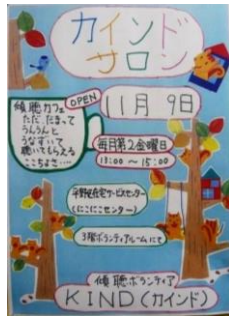 カインド
サロン
傾聴カフェ
ただ、だまって
うんうんと
うなずいて
聴いてもらえる
ここちよさ…
OPEN
11月9日
毎月第2金曜日
13:00～15:00
平野区在宅サービスセンター
(にこにこセンター)
3階ボランティアルームにて
傾聴ボランティア
KIND(カインド)